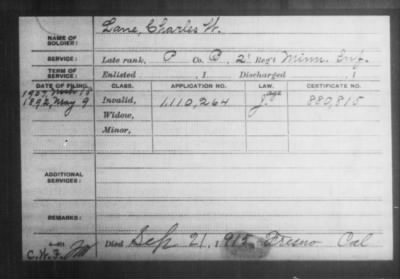 Lane, Charles W.
NAME OF SOLDIER:
SERVICE: Late rank, P Co. B, 2" Reg't Minn. Inf.
TERM OF SERVICE: Enlisted , 1 Discharged , 1
DATE OF FILING. CLASS. APPLICATION NO. LAW. CERTIFICATE NO.
1907,
1892, May 9 Invalid, 1,110,264 age 880,815
Widow,
Minor,
ADDITIONAL SERVICES:
REMARKS:
Died Sep 21, 1915, Fresno Cal